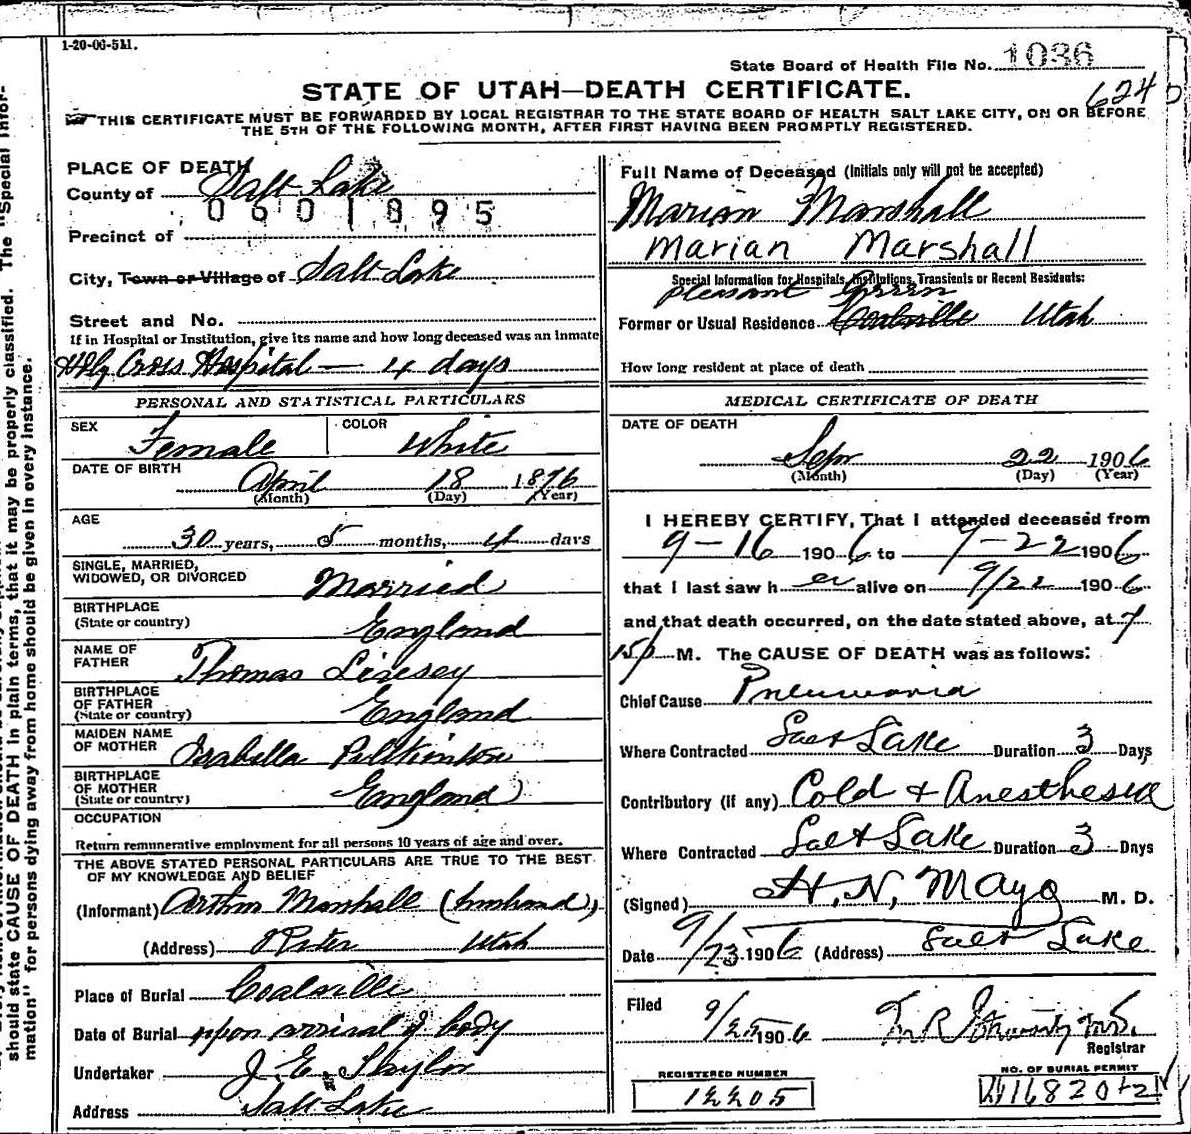 1-20-06-5M.
State Board of Health File No. 1036
6240
STATE OF UTAH—DEATH CERTIFICATE.
THIS CERTIFICATE MUST BE FORWARDED BY LOCAL REGISTRAR TO THE STATE BOARD OF HEALTH SALT LAKE CITY, ON OR BEFORE
THE 5TH OF THE FOLLOWING MONTH, AFTER FIRST HAVING BEEN PROMPTLY REGISTERED.
PLACE OF DEATH
County of Salt Lake
0601895
Precinct of
City, Town or Village of Salt Lake
Street and No.
If in Hospital or Institution, give its name and how long deceased was an inmate
Holy Cross Hospital — 4 days
PERSONAL AND STATISTICAL PARTICULARS
SEX Female COLOR White
DATE OF BIRTH April 18 1876
(Month) (Day) (Year)
AGE
30 years, 5 months, 4 days
SINGLE, MARRIED,
WIDOWED, OR DIVORCED Married
BIRTHPLACE
(State or country) England
NAME OF
FATHER Thomas Linsey
BIRTHPLACE
OF FATHER
(State or country) England
MAIDEN NAME
OF MOTHER Isabella
BIRTHPLACE
OF MOTHER
(State or country) England
OCCUPATION
Return remunerative employment for all persons 10 years of age and over.
THE ABOVE STATED PERSONAL PARTICULARS ARE TRUE TO THE BEST
OF MY KNOWLEDGE AND BELIEF
(Informant) Arthur Marshall (husband)
(Address) Utah
Place of Burial Coalville
Date of Burial upon arrival of body
Undertaker J. E. Taylor
Address Salt Lake
Full Name of Deceased (Initials only will not be accepted)
Marian Marshall
Marian Marshall
Special Information for Hospitals, Institutions, Transients or Recent Residents:
Pleasant Green
Former or Usual Residence Coalville Utah
How long resident at place of death
MEDICAL CERTIFICATE OF DEATH
DATE OF DEATH
Sep 22 1906
(Month) (Day) (Year)
I HEREBY CERTIFY, That I attended deceased from
9-16 1906 to 9-22 1906
that I last saw h er alive on 9/22 1906
and that death occurred, on the date stated above, at 7
15 P M. The CAUSE OF DEATH was as follows:
Chief Cause Pneumonia
Where Contracted Salt Lake Duration 3 Days
Contributory (if any) Cold + Anesthesia
Where Contracted Salt Lake Duration 3 Days
(Signed) H. N. Mayo M. D.
Date 9/23 1906 (Address) Salt Lake
Filed 9/25 1906
Registrar
REGISTERED NUMBER
12205
NO. OF BURIAL PERMIT
should state CAUSE OF DEATH in plain terms, that it may be properly classified. The "Special Infor-
mation" for persons dying away from home should be given in every instance.